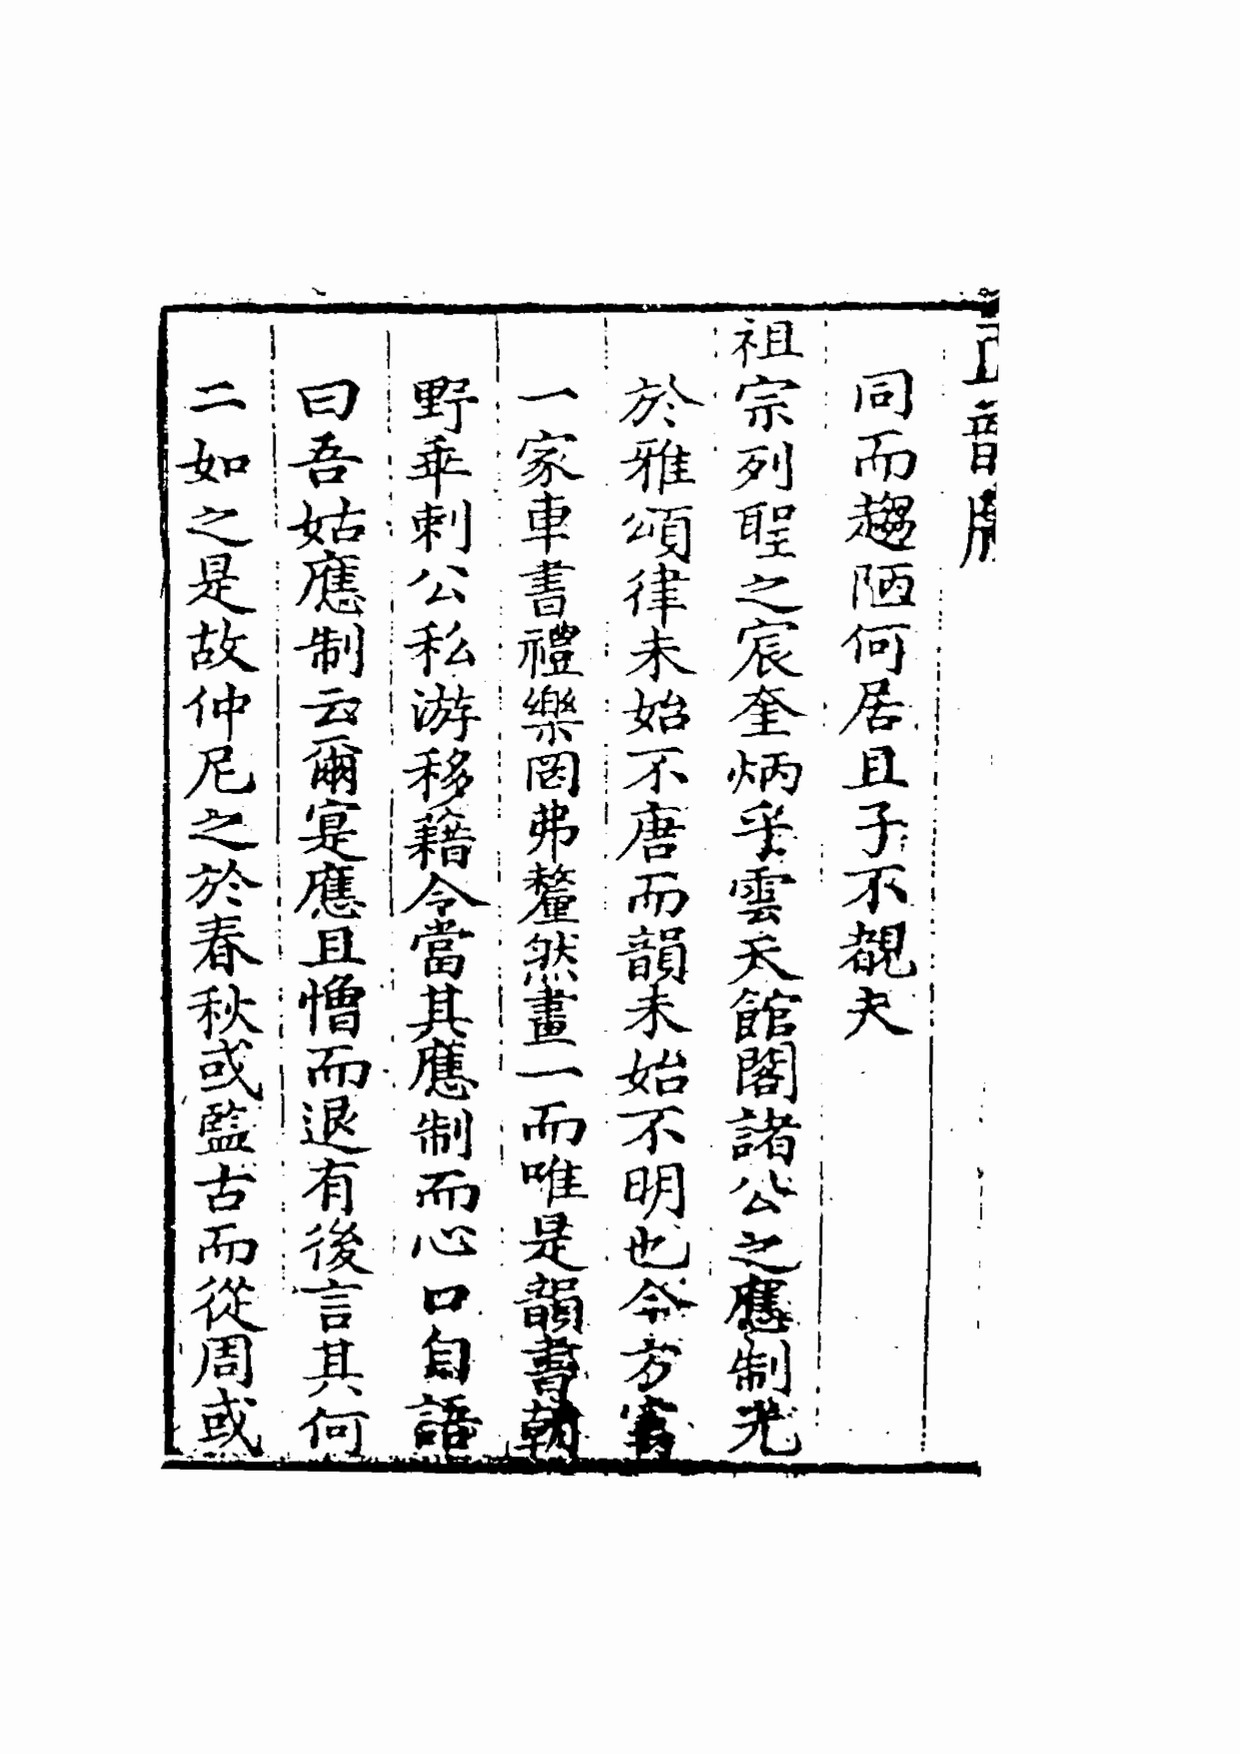 同而趨陋何居且子不覩夫
祖宗列聖之宸奎炳乎雲天館閣諸公之應制光
於雅頌律未始不唐而韻未始不明也今方寓
一家車書禮樂罔弗釐然畫一而唯是韻書朝
野乖剌公私游移藉令當其應制而心口自語
曰吾姑應制云爾寔應且憎而退有後言其何
二如之是故仲尼之於春秋或監古而從周或